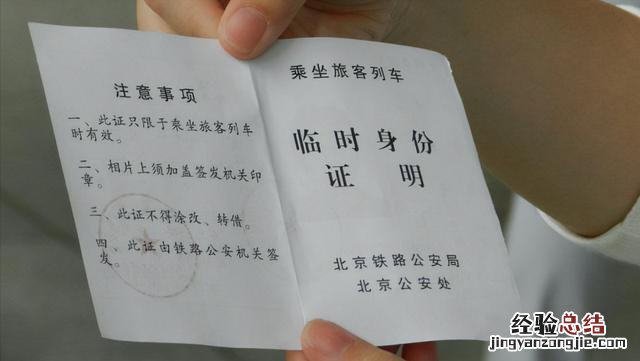 注意事项
一、此证只限于乘坐旅客列车
时有效。
二、相片上须加盖签发机关印
章。
三、此证不得涂改、转借。
四、此证由铁路公安机关签
发。
乘坐旅客列车
临时身份
证明
北京铁路公安局
北京公安处
经验总结
jingyanzongjie.com